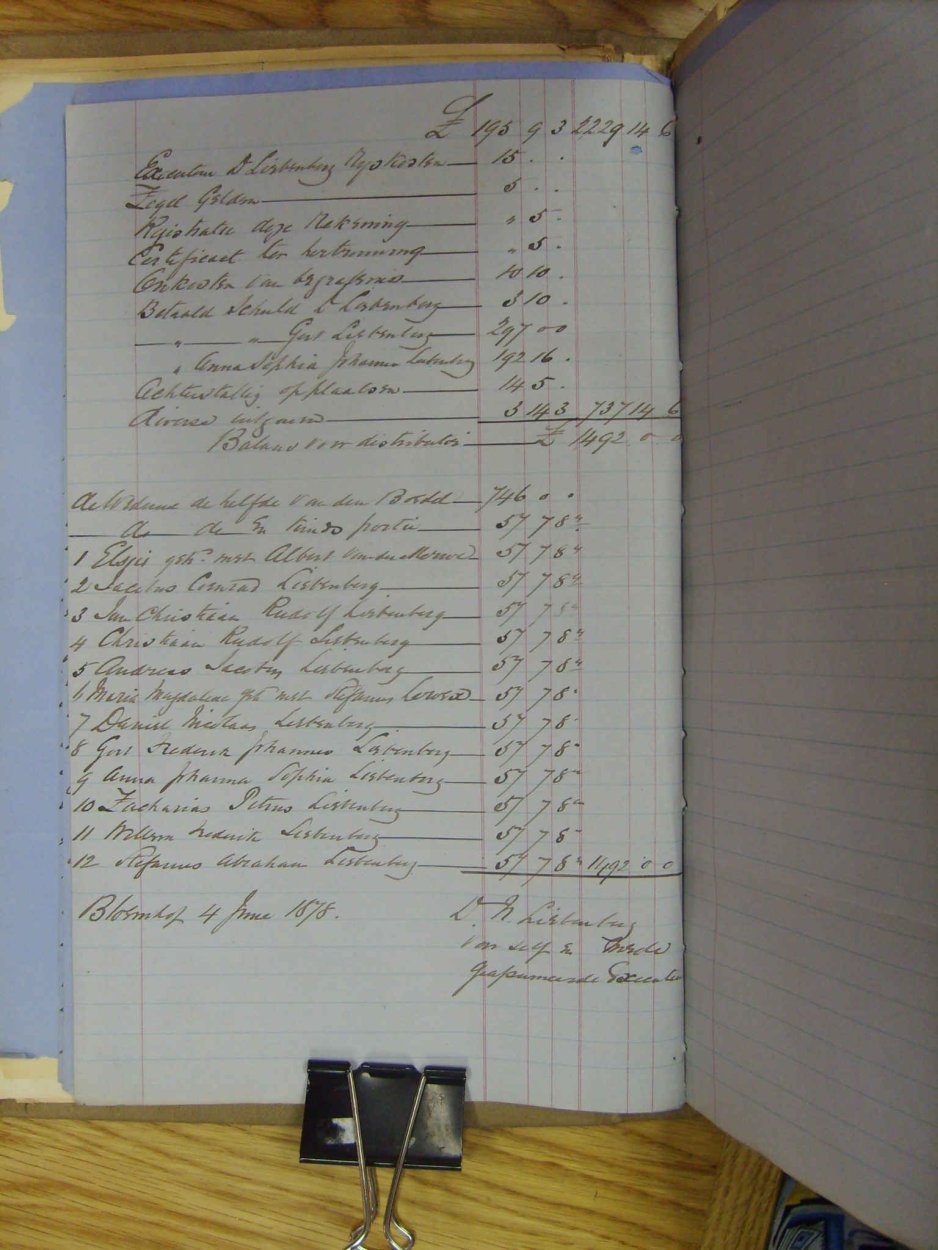 £ 195 9 3 2229 14 6
Executeur D Liebenberg Ryskosten 15 . .
Zegel Gelden 5 . .
Registratie deze Rekening " 5 .
Certificaet ter hertrouwing " 5 .
Onkosten van begrafenis 10 10 .
Betaald Schuld D Liebenberg 3 10 .
" " Gert Liebenberg 297 0 0
" Anna Sophia Johanna Liebenberg 192 16 .
Achterstallig op plaatsen 14 5 .
Diverse uitgaven 3 14 3 737 14 6
Balans voor distributie £ 1492 0 0
de Weduwe de helfde van den Boedel 746 0 0
do de En kinds portie 57 7 8
1 Elsjie geh. met Albert van der Merwe 57 7 8
2 Jacobus Coenrad Liebenberg 57 7 8
3 Jan Christiaan Rudolf Liebenberg 57 7 8
4 Christiaan Rudolf Liebenberg 57 7 8
5 Andreas Jacobus Liebenberg 57 7 8
6 Maria Magdalena geh met Stefanus 57 7 8
7 Daniel Nicolaas Liebenberg 57 7 8
8 Gert Frederik Johannes Liebenberg 57 7 8
9 Anna Johanna Sophia Liebenberg 57 7 8
10 Zacharias Petrus Liebenberg 57 7 8
11 Willem Frederik Liebenberg 57 7 8
12 Stefanus Abraham Liebenberg 57 7 8 1492 0 0
Bloemhof 4 June 1878.
D. N. Liebenberg
voor self en mede
geassumeerde Executeur